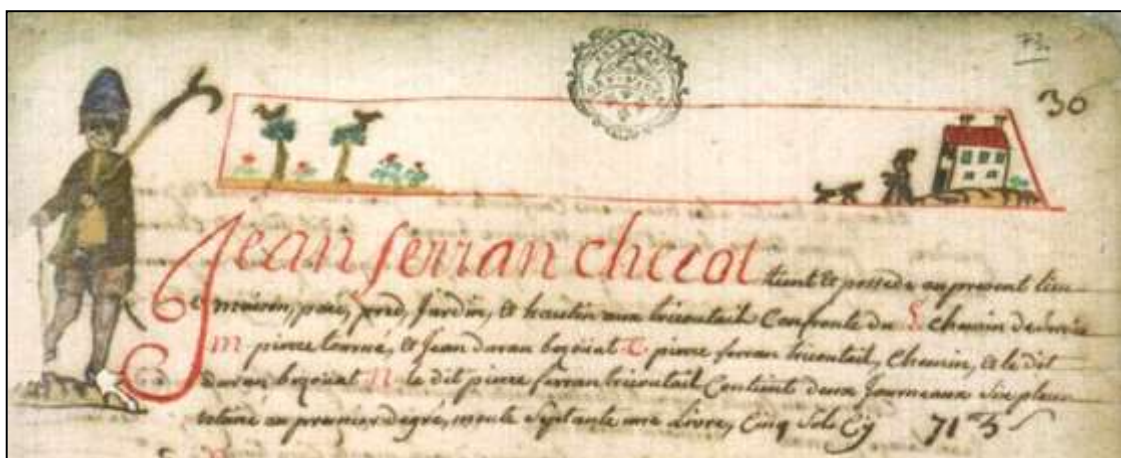 73.
30
Jean ferran checot tient et possede au present lieu
maison, parc, pred, Jardin, et hautin aux tricoutail Confronte du L. chemin de
M pierre et Jean daran bezouat C. pierre ferran tricoutail, chemin, et le dit
daran bezouat N. le dit pierre ferran tricoutail Contient deux Journeaux Six
au premier degré, monte Septante une Livre, Cinq Sols Cy 71 5